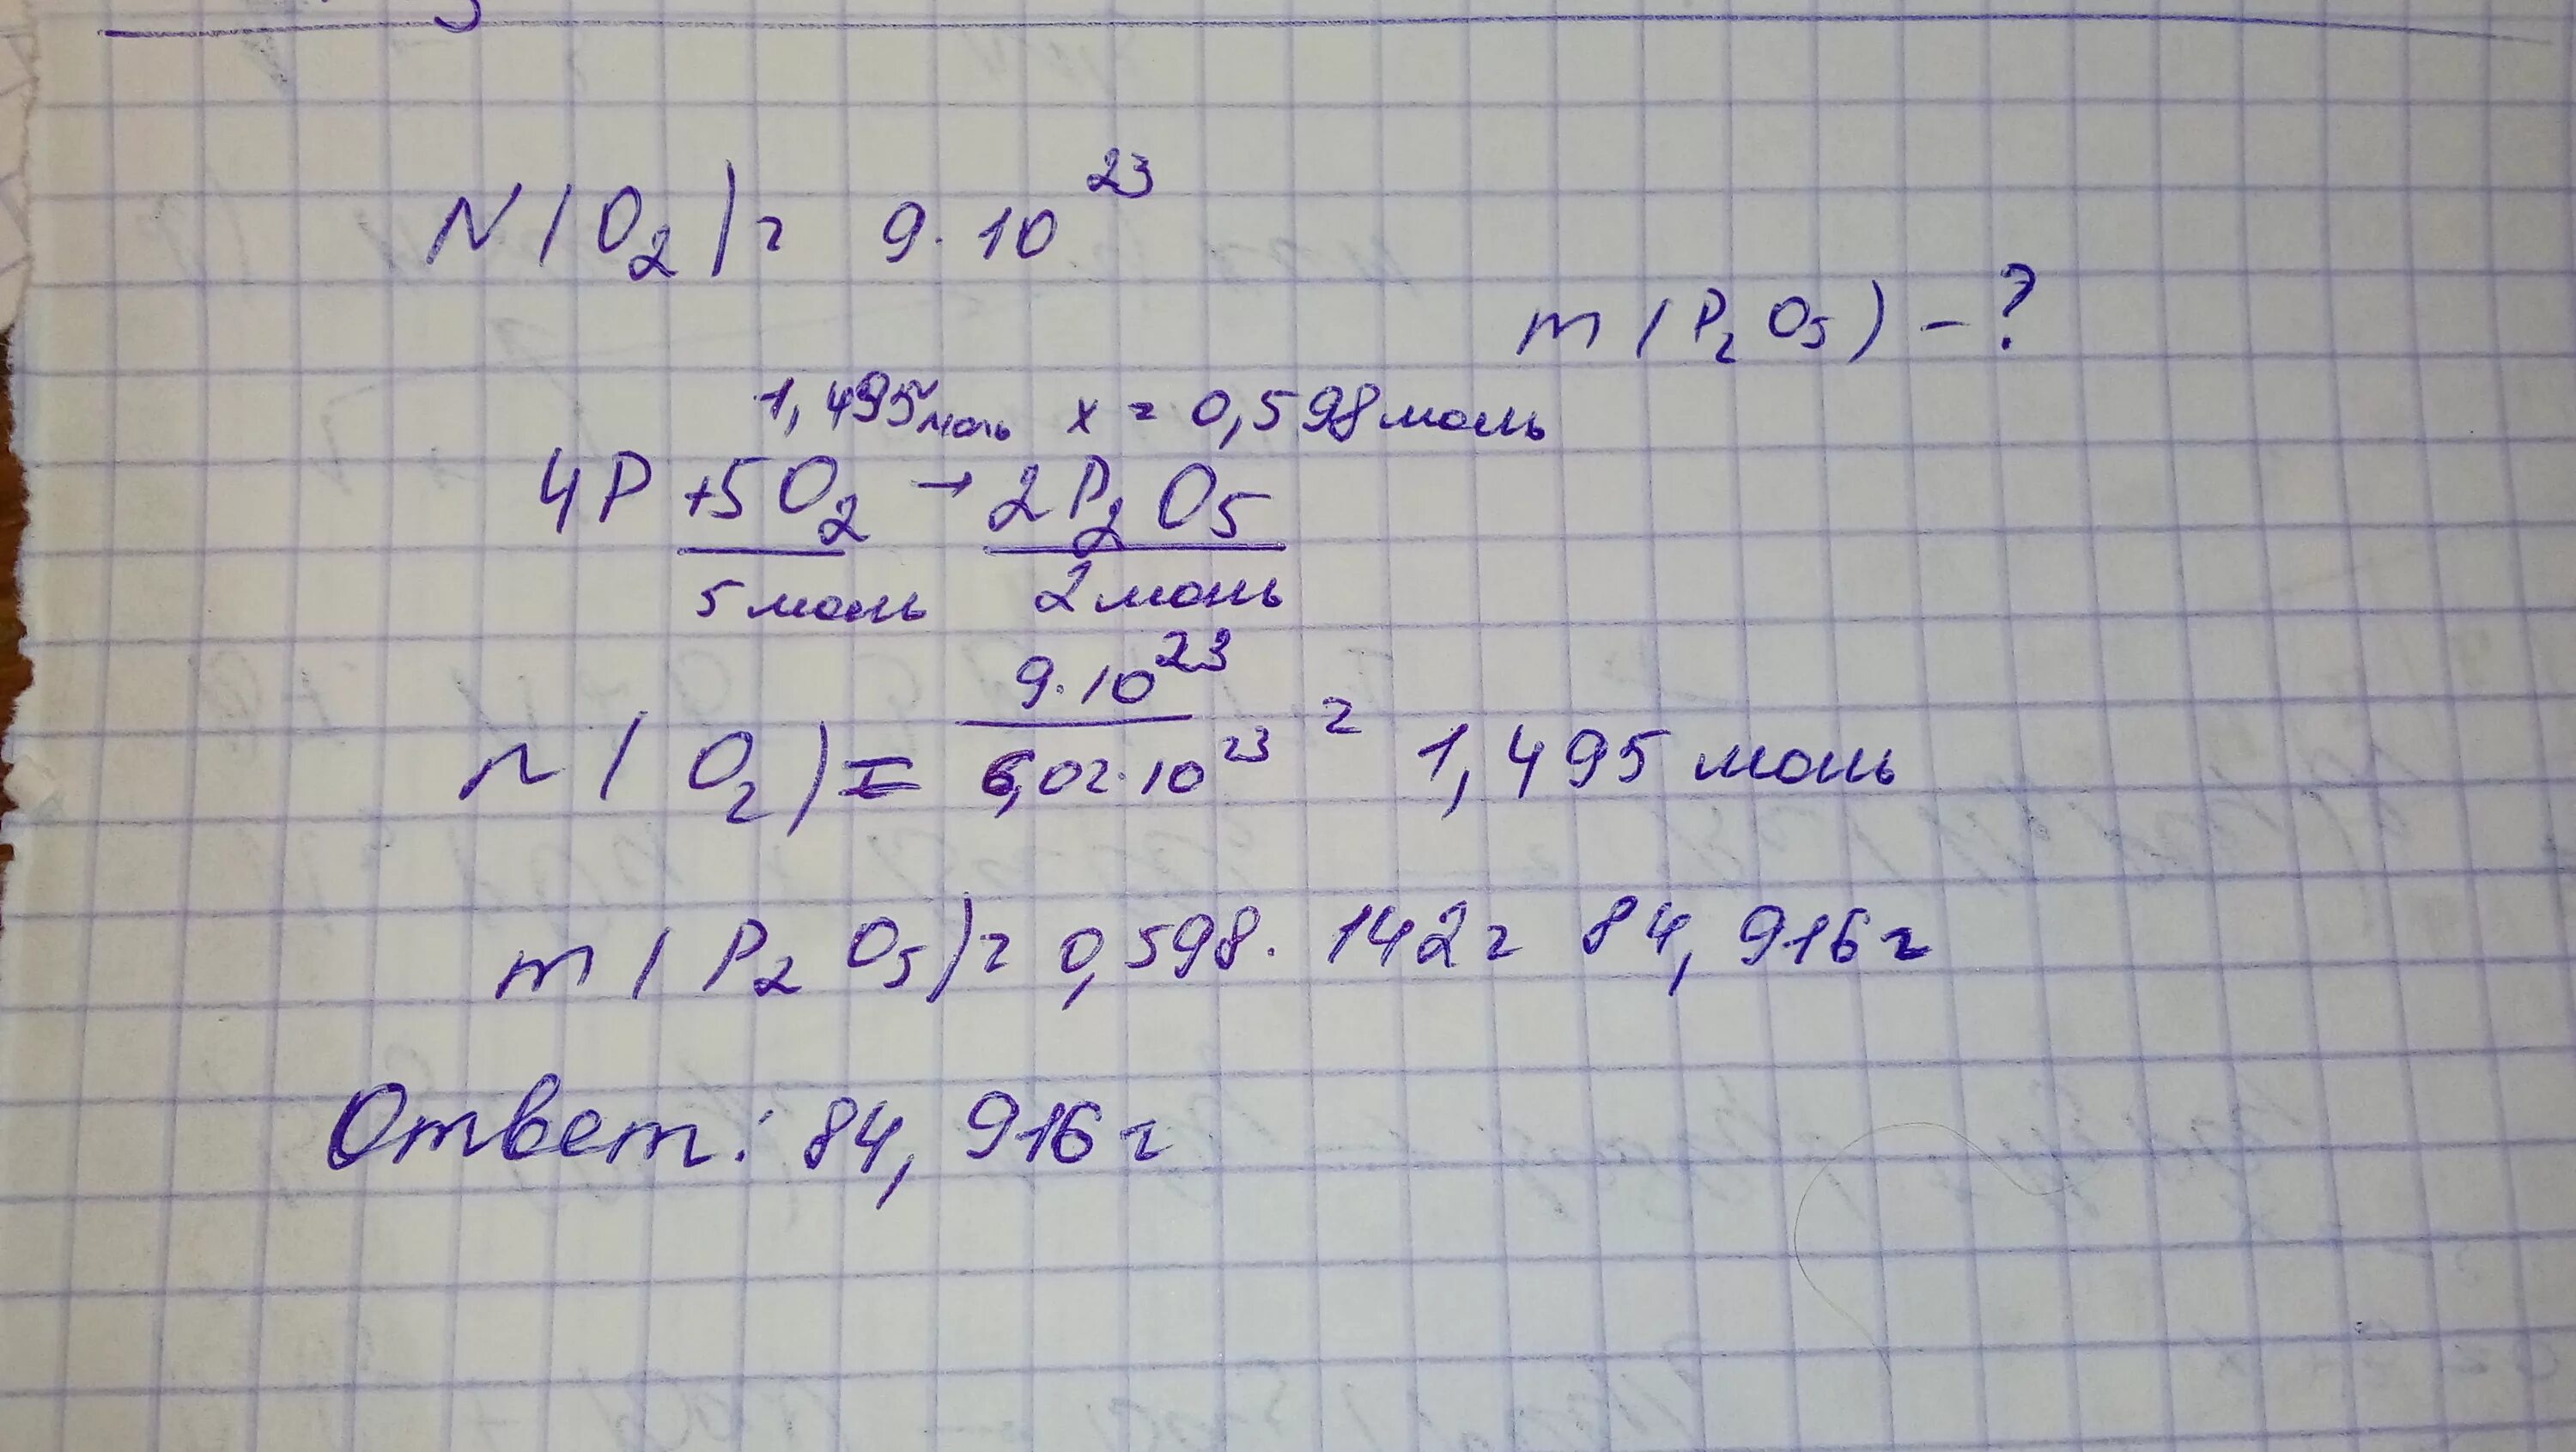 N(O₂) = 9·10²³
m(P₂O₅) – ?
1,495 моль x = 0,598 моль
4P + 5O₂ → 2P₂O₅
5 моль 2 моль
n(O₂) = 9·10²³ / 6,02·10²³ = 1,495 моль
m(P₂O₅) = 0,598 · 142 = 84,916 г
Ответ: 84, 916 г